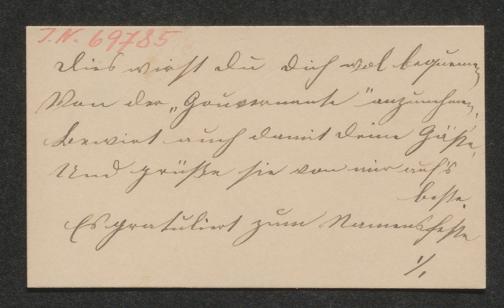 I.N. 69785
Dies wirst Du Dich wol bequemen
Von der „Gouvernante" anzunehmen,
Bewirt auch damit Deine Gäste,
Und grüße sie von mir auf's
beste.
Es gratuliert zum Namensfeste